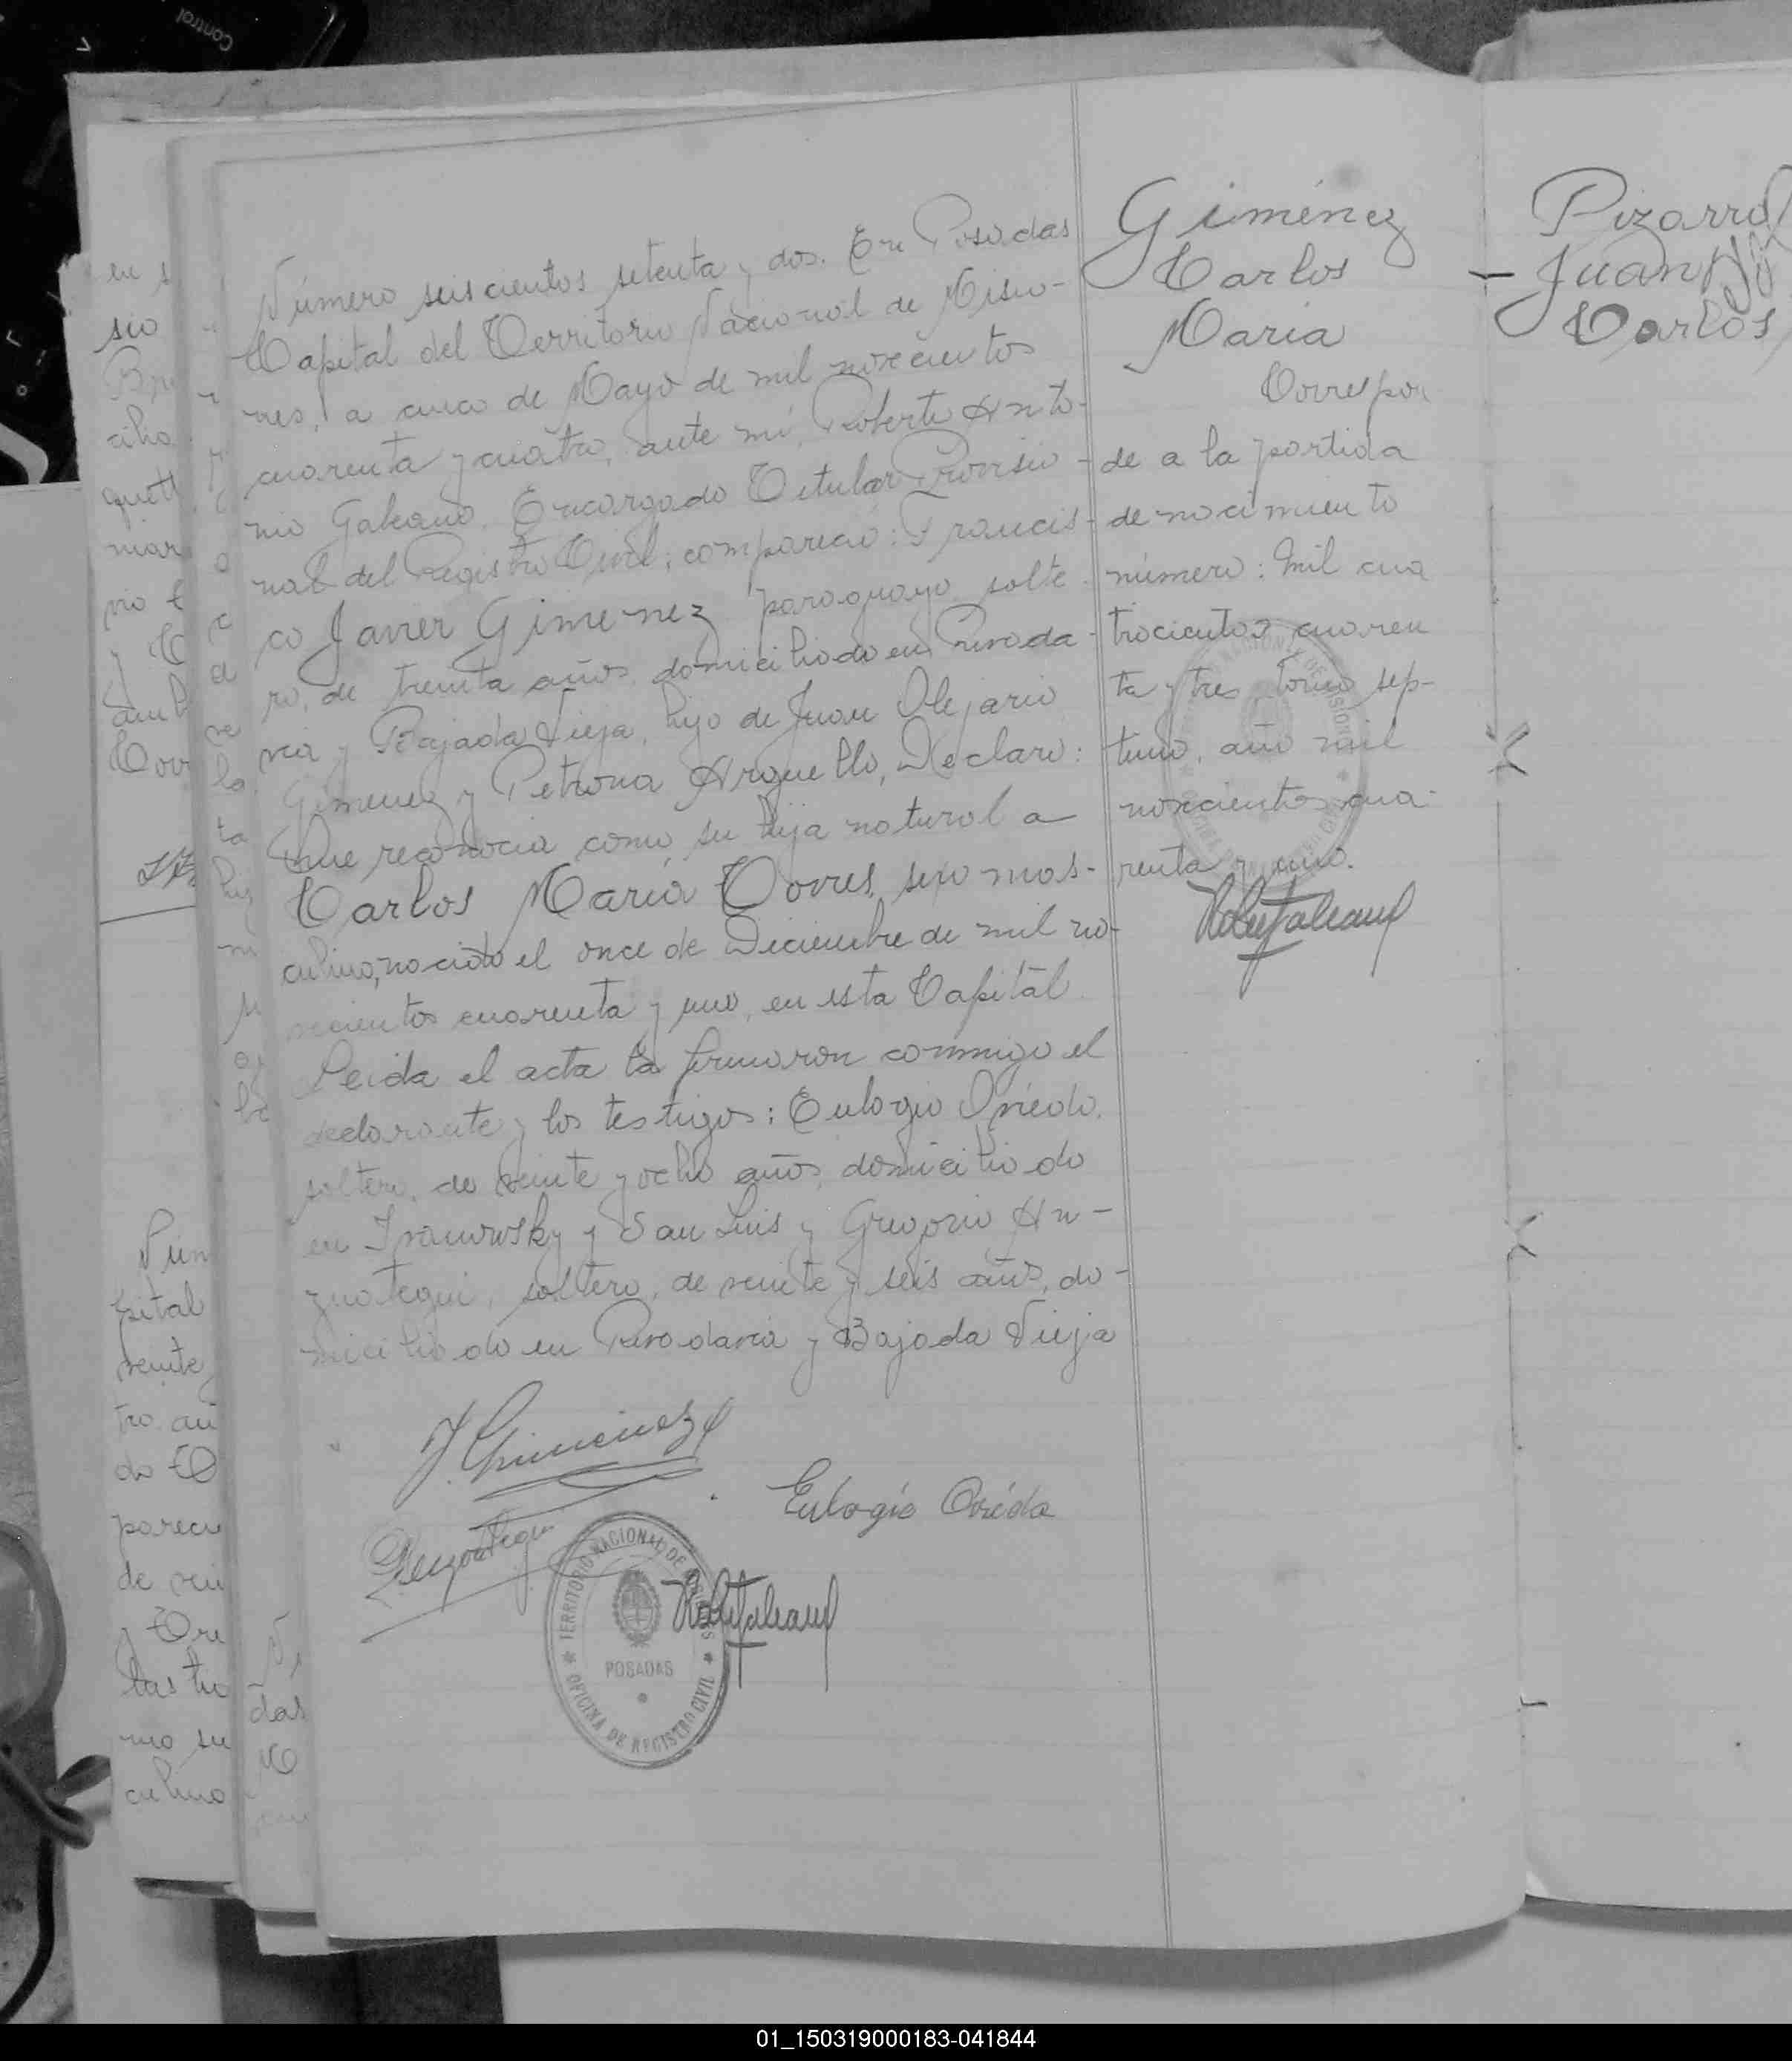 Número seiscientos setenta y dos. En Posadas
Capital del Territorio Nacional de Misio-
nes, a cinco de Mayo de mil novecientos
cuarenta y cuatro, ante mí, Roberto Anto-
nio Galeano, Encargado Titular Provisio-
nal del Registro Civil; compareció: Francis-
co Javier Gimenez paraguayo, solte-
ro, de treinta años, domiciliado en Rivada-
via y Bajada Vieja, hijo de Juan Olejario
Gimenez y Petrona Arguello, Declaro:
Que reconocia como su hijo natural a
Carlos María Torres, sexo mas-
culino, nacido el once de Diciembre de mil no-
vecientos cuarenta y uno, en esta Capital.
Leida el acta la firmaron conmigo el
declarante y los testigos: Eulogio Oviedo,
soltero, de veinte y ocho años, domiciliado
en Ivanowsky y San Luis y Gregorio An-
zuategui, soltero, de veinte y seis años, do-
miciliado en Rivadavia y Bajada Vieja
J. Gimenez
Eulogio Oviedo
TERRITORIO NACIONAL DE MISIONES
POSADAS
OFICINA DE REGISTRO CIVIL
Giménez
Carlos
María
Correspon
de a la partida
de nacimiento
número: mil cua
trocientos cuaren
ta y tres tomo sep-
timo, año mil
novecientos cua-
renta y uno.
Pizarro
Juan
Carlos
en s
sio
cilio
mar
Corr
pital
veinte
tro. an
do
parecu
de vein
culino
das
Control
01_150319000183-041844